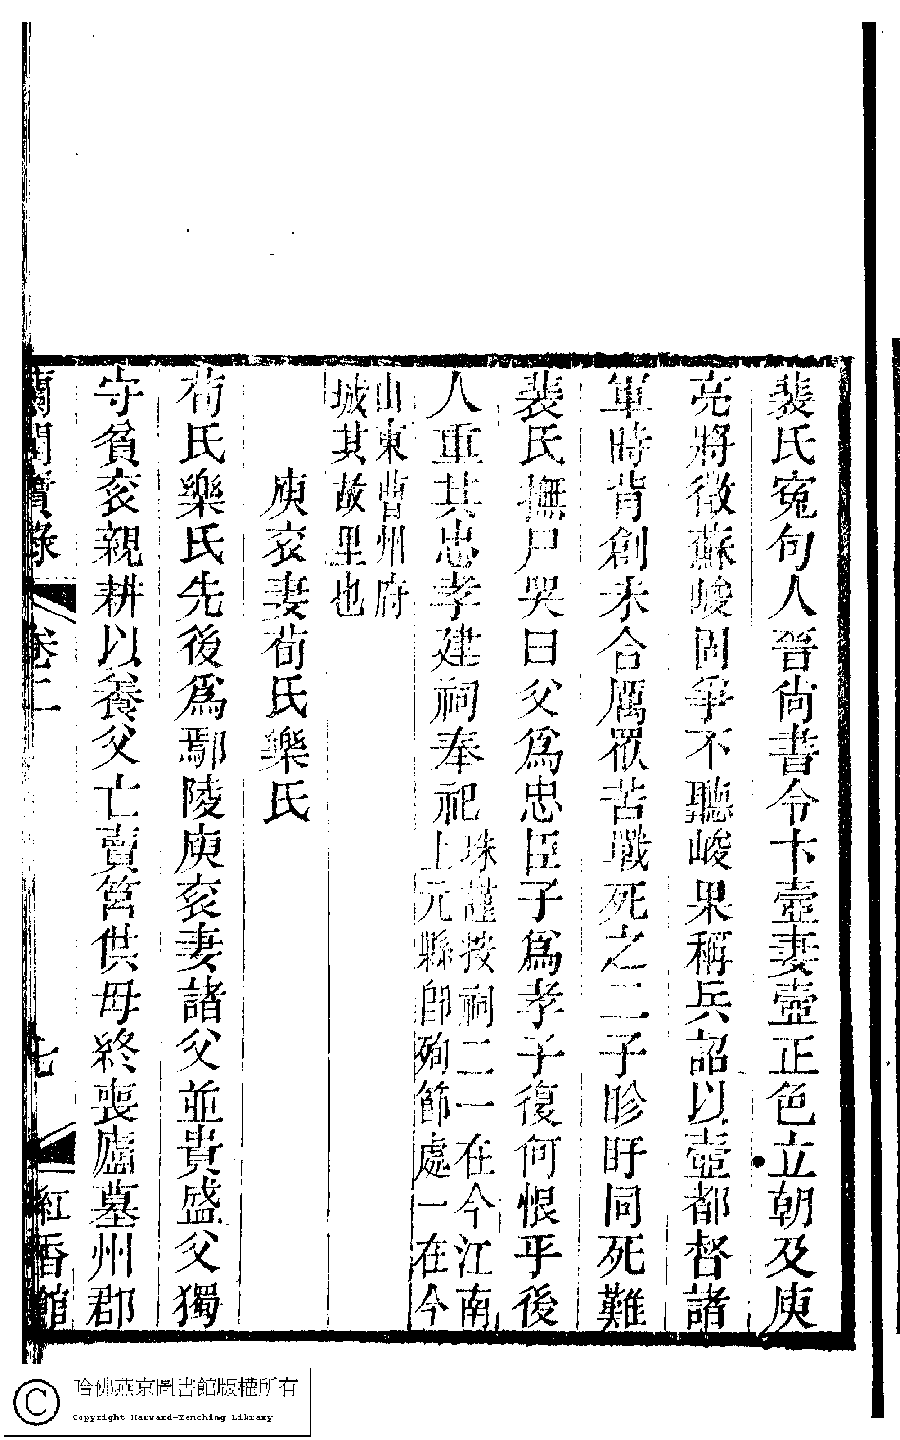 裴氏冤句人晉尚書令卞壼妻壼正色立朝及庾
亮將徵蘇峻固爭不聽峻果稱兵詔以壼都督諸
軍時背創未合厲眾苦戰死之二子眕盱同死難
裴氏撫尸哭曰父為忠臣子為孝子復何恨乎後
人重其忠孝建祠奉祀
珠謹按祠二一在今江南
上元縣即殉節處一在今
山東曹州府
城其故里也
庾袞妻荀氏樂氏
荀氏樂氏先後為鄢陵庾袞妻諸父並貴盛父獨
守貧袞親耕以養父亡賣筥供母終喪廬墓州郡
蘭閨寶錄
卷二
七
紅香館
哈佛燕京圖書館版權所有
Copyright Harvard-Yenching Library